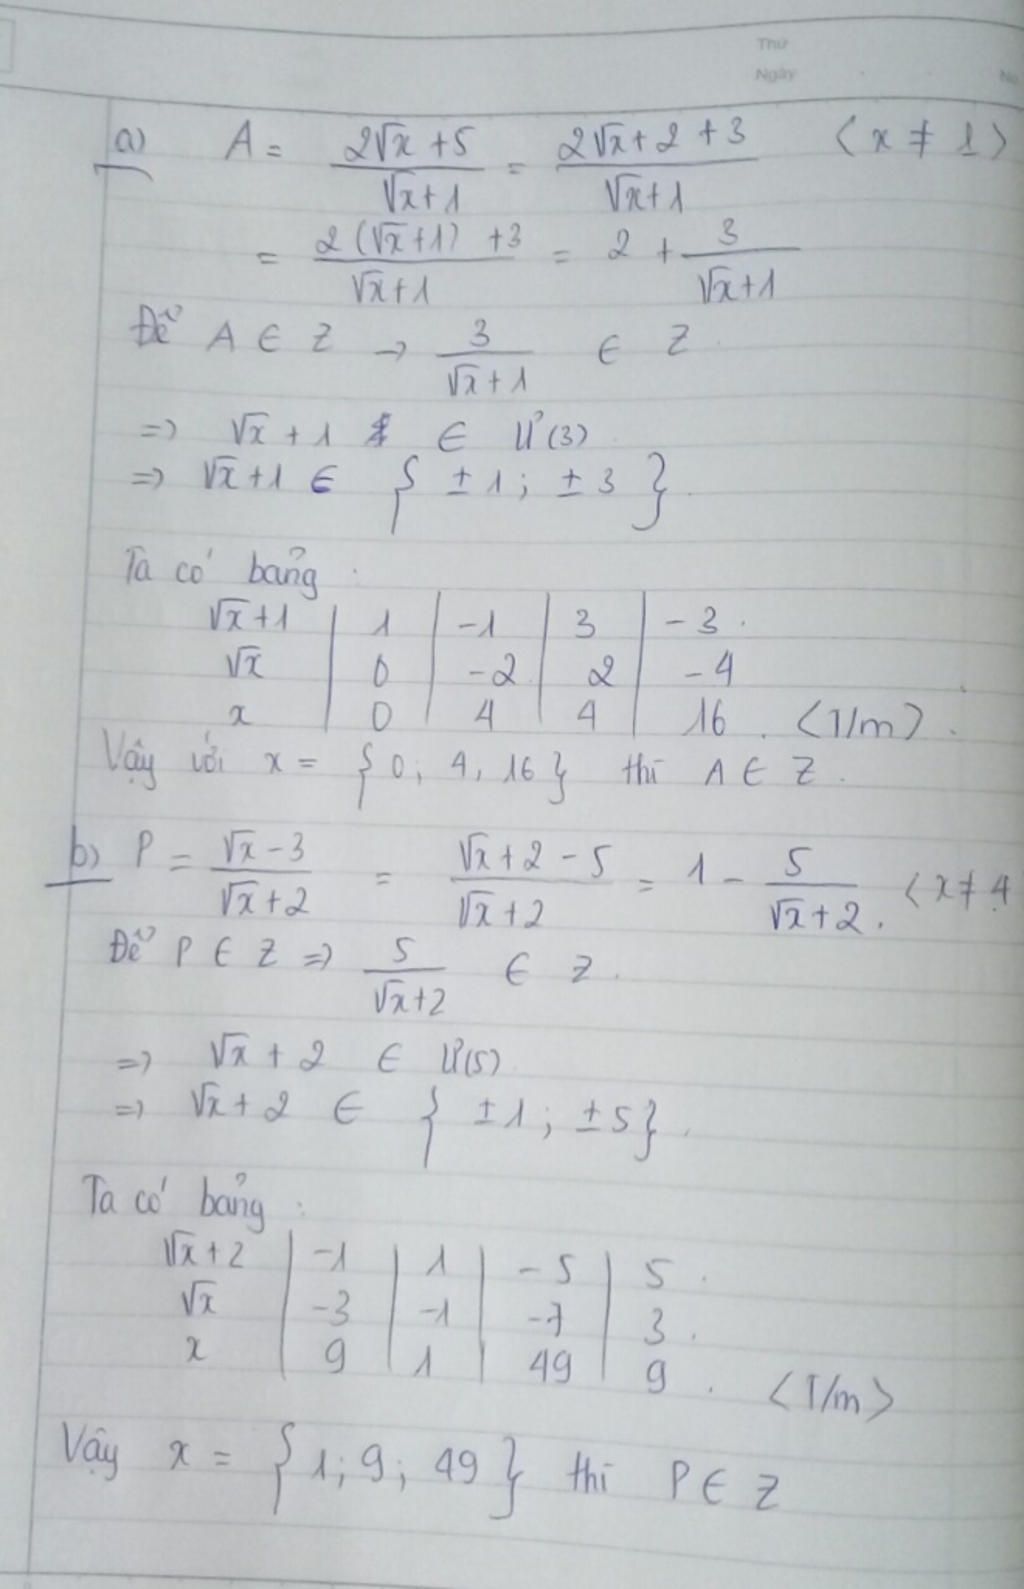 Thứ
Ngày
No
a) A = (2√x + 5)/(√x + 1) = (2√x + 2 + 3)/(√x + 1) < x ≠ 1 >
= (2(√x + 1) + 3)/(√x + 1) = 2 + 3/(√x + 1)
Để A ∈ Z → 3/(√x + 1) ∈ Z
=> √x + 1 ∈ Ư(3)
=> √x + 1 ∈ { ± 1 ; ± 3 }.
Ta có bảng :
√x + 1 | 1 | -1 | 3 | -3 .
√x | 0 | -2 | 2 | -4
x | 0 | 4 | 4 | 16 . <T/m> .
Vậy với x = { 0 ; 4 , 16 } thì A ∈ Z .
b) P = (√x - 3)/(√x + 2) = (√x + 2 - 5)/(√x + 2) = 1 - 5/(√x + 2) . < x ≠ 4
Để P ∈ Z => 5/(√x + 2) ∈ Z .
=> √x + 2 ∈ Ư(5)
=> √x + 2 ∈ { ± 1 ; ± 5 } .
Ta có bảng :
√x + 2 | -1 | 1 | -5 | 5 .
√x | -3 | -1 | -7 | 3 .
x | 9 | 1 | 49 | 9 . <T/m>
Vậy x = { 1 ; 9 ; 49 } thì P ∈ Z